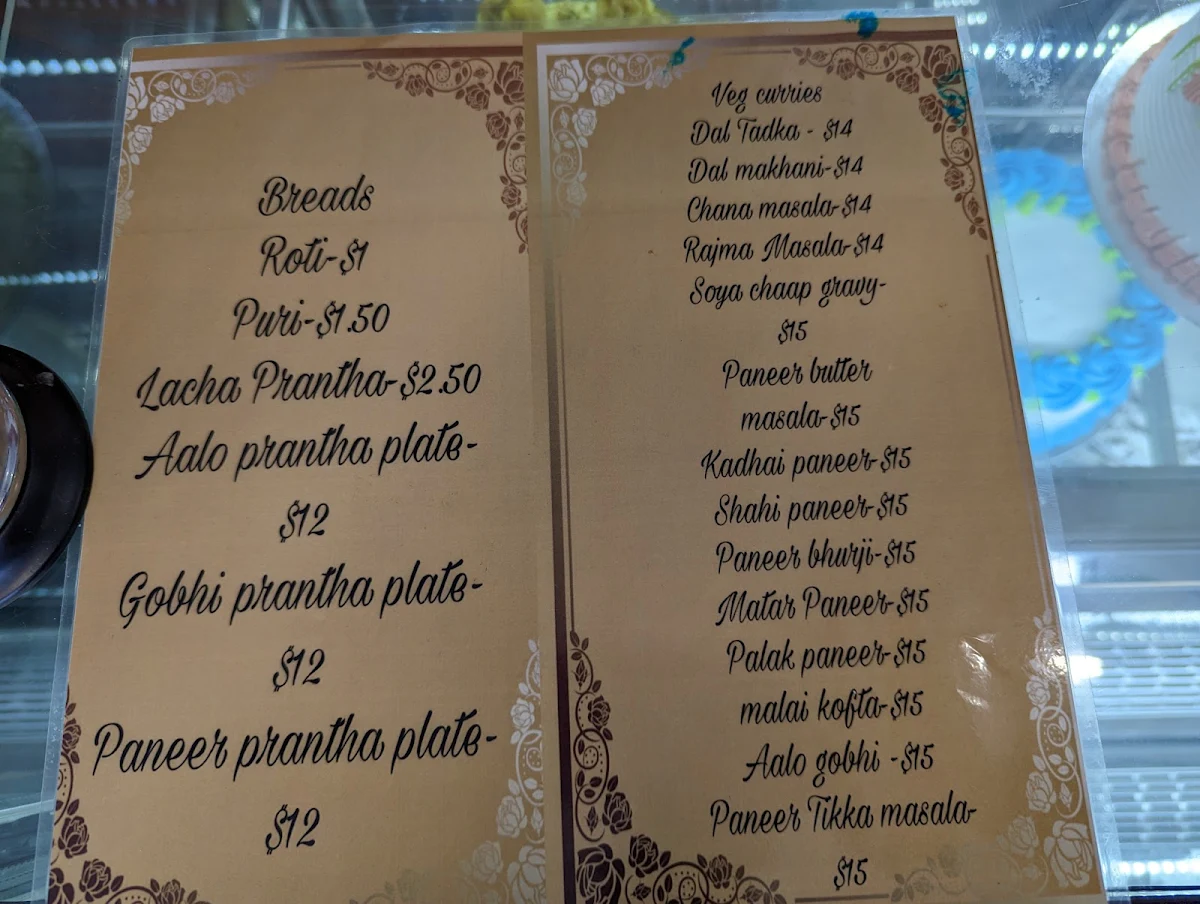 Breads
Roti-$1
Puri-$1.50
Lacha Prantha-$2.50
Aalo prantha plate-
$12
Gobhi prantha plate-
$12
Paneer prantha plate-
$12
Veg curries
Dal Tadka - $14
Dal makhani-$14
Chana masala-$14
Rajma Masala-$14
Soya chaap gravy-
$15
Paneer butter
masala-$15
Kadhai paneer-$15
Shahi paneer-$15
Paneer bhurji-$15
Matar Paneer-$15
Palak paneer-$15
malai kofta-$15
Aalo gobhi -$15
Paneer Tikka masala-
$15